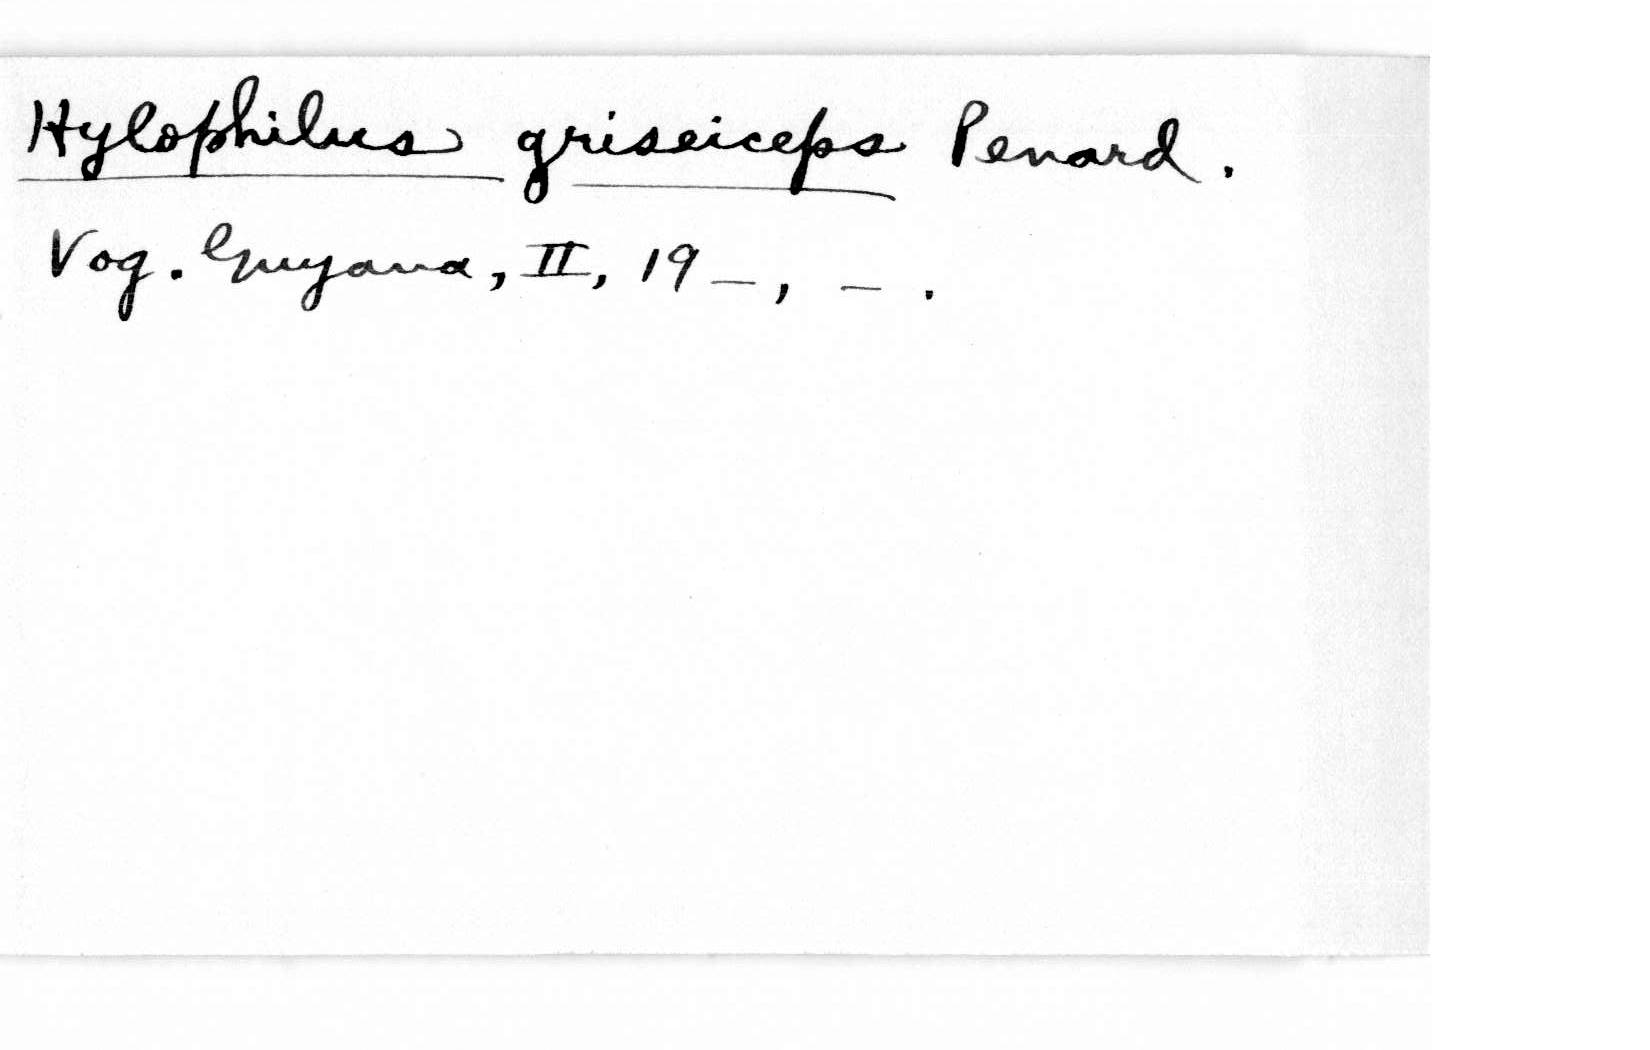 Hylophilus griseiceps Penard.
Vog. Guyana, II, 19_, _.